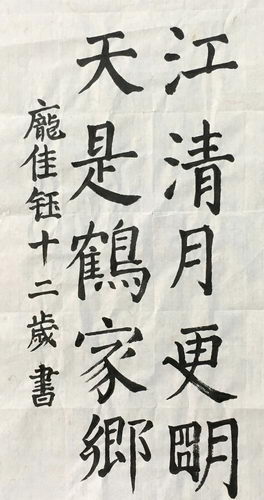 江清月更明
天是鶴家鄉
龐佳鈺十二歲書